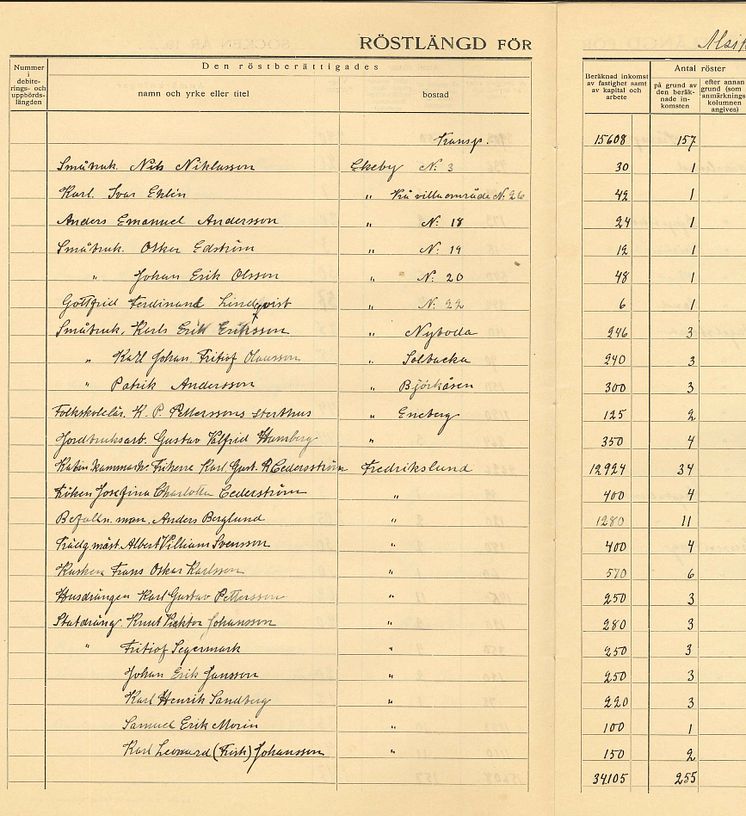 RÖSTLÄNGD FÖR Alsi
Nummer i debiterings- och uppbördslängden
Den röstberättigades
namn och yrke eller titel
bostad
Beräknad inkomst av fastighet samt av kapital och arbete
Antal röster
på grund av den beräknade inkomsten
efter annan grund (som i anmärkningskolumnen angives)
Transp. 15608 157
Småbruk. Nils Niklasson Ekeby N: 3 30 1
Karl. Ivar Ehlin " villaområde N: 26 42 1
Anders Emanuel Andersson " N: 18 24 1
Småbruk. Oskar Edström " N: 19 12 1
" Johan Erik Olsson " N: 20 48 1
Gottfrid Ferdinand Lindqvist " N: 22 6 1
Småbruk. Karls Erik Eriksson " Nyboda 246 3
" Karl Johan Fritiof Olausson " Solbacka 240 3
" Patrik Andersson " Björkåsen 300 3
Folkskolelär. K. P. Petterssons sterbhus " Eneberg 125 2
Jordbruksarb. Gustav Valfrid " 350 4
Kabin.kammarh. Friherre Karl Gust. R Cedersström Fredrikslund 12924 34
Fröken Josefina Charlotta Cederström " 400 4
Befalln. man. Anders Berglund " 1280 11
Trädg mäst. Albert William Svensson " 400 4
Kusken Frans Oskar Karlsson " 570 6
Husdrängen Karl Gustav Pettersson " 250 3
Statdräng Knut Viktor Johansson " 280 3
" Fritiof Segermark " 250 3
Johan Erik Jansson " 250 3
Karl Henrik Sandberg " 220 3
Samuel Erik Morin " 100 1
Karl Leonard (Frisk) Johansson " 150 2
34105 255